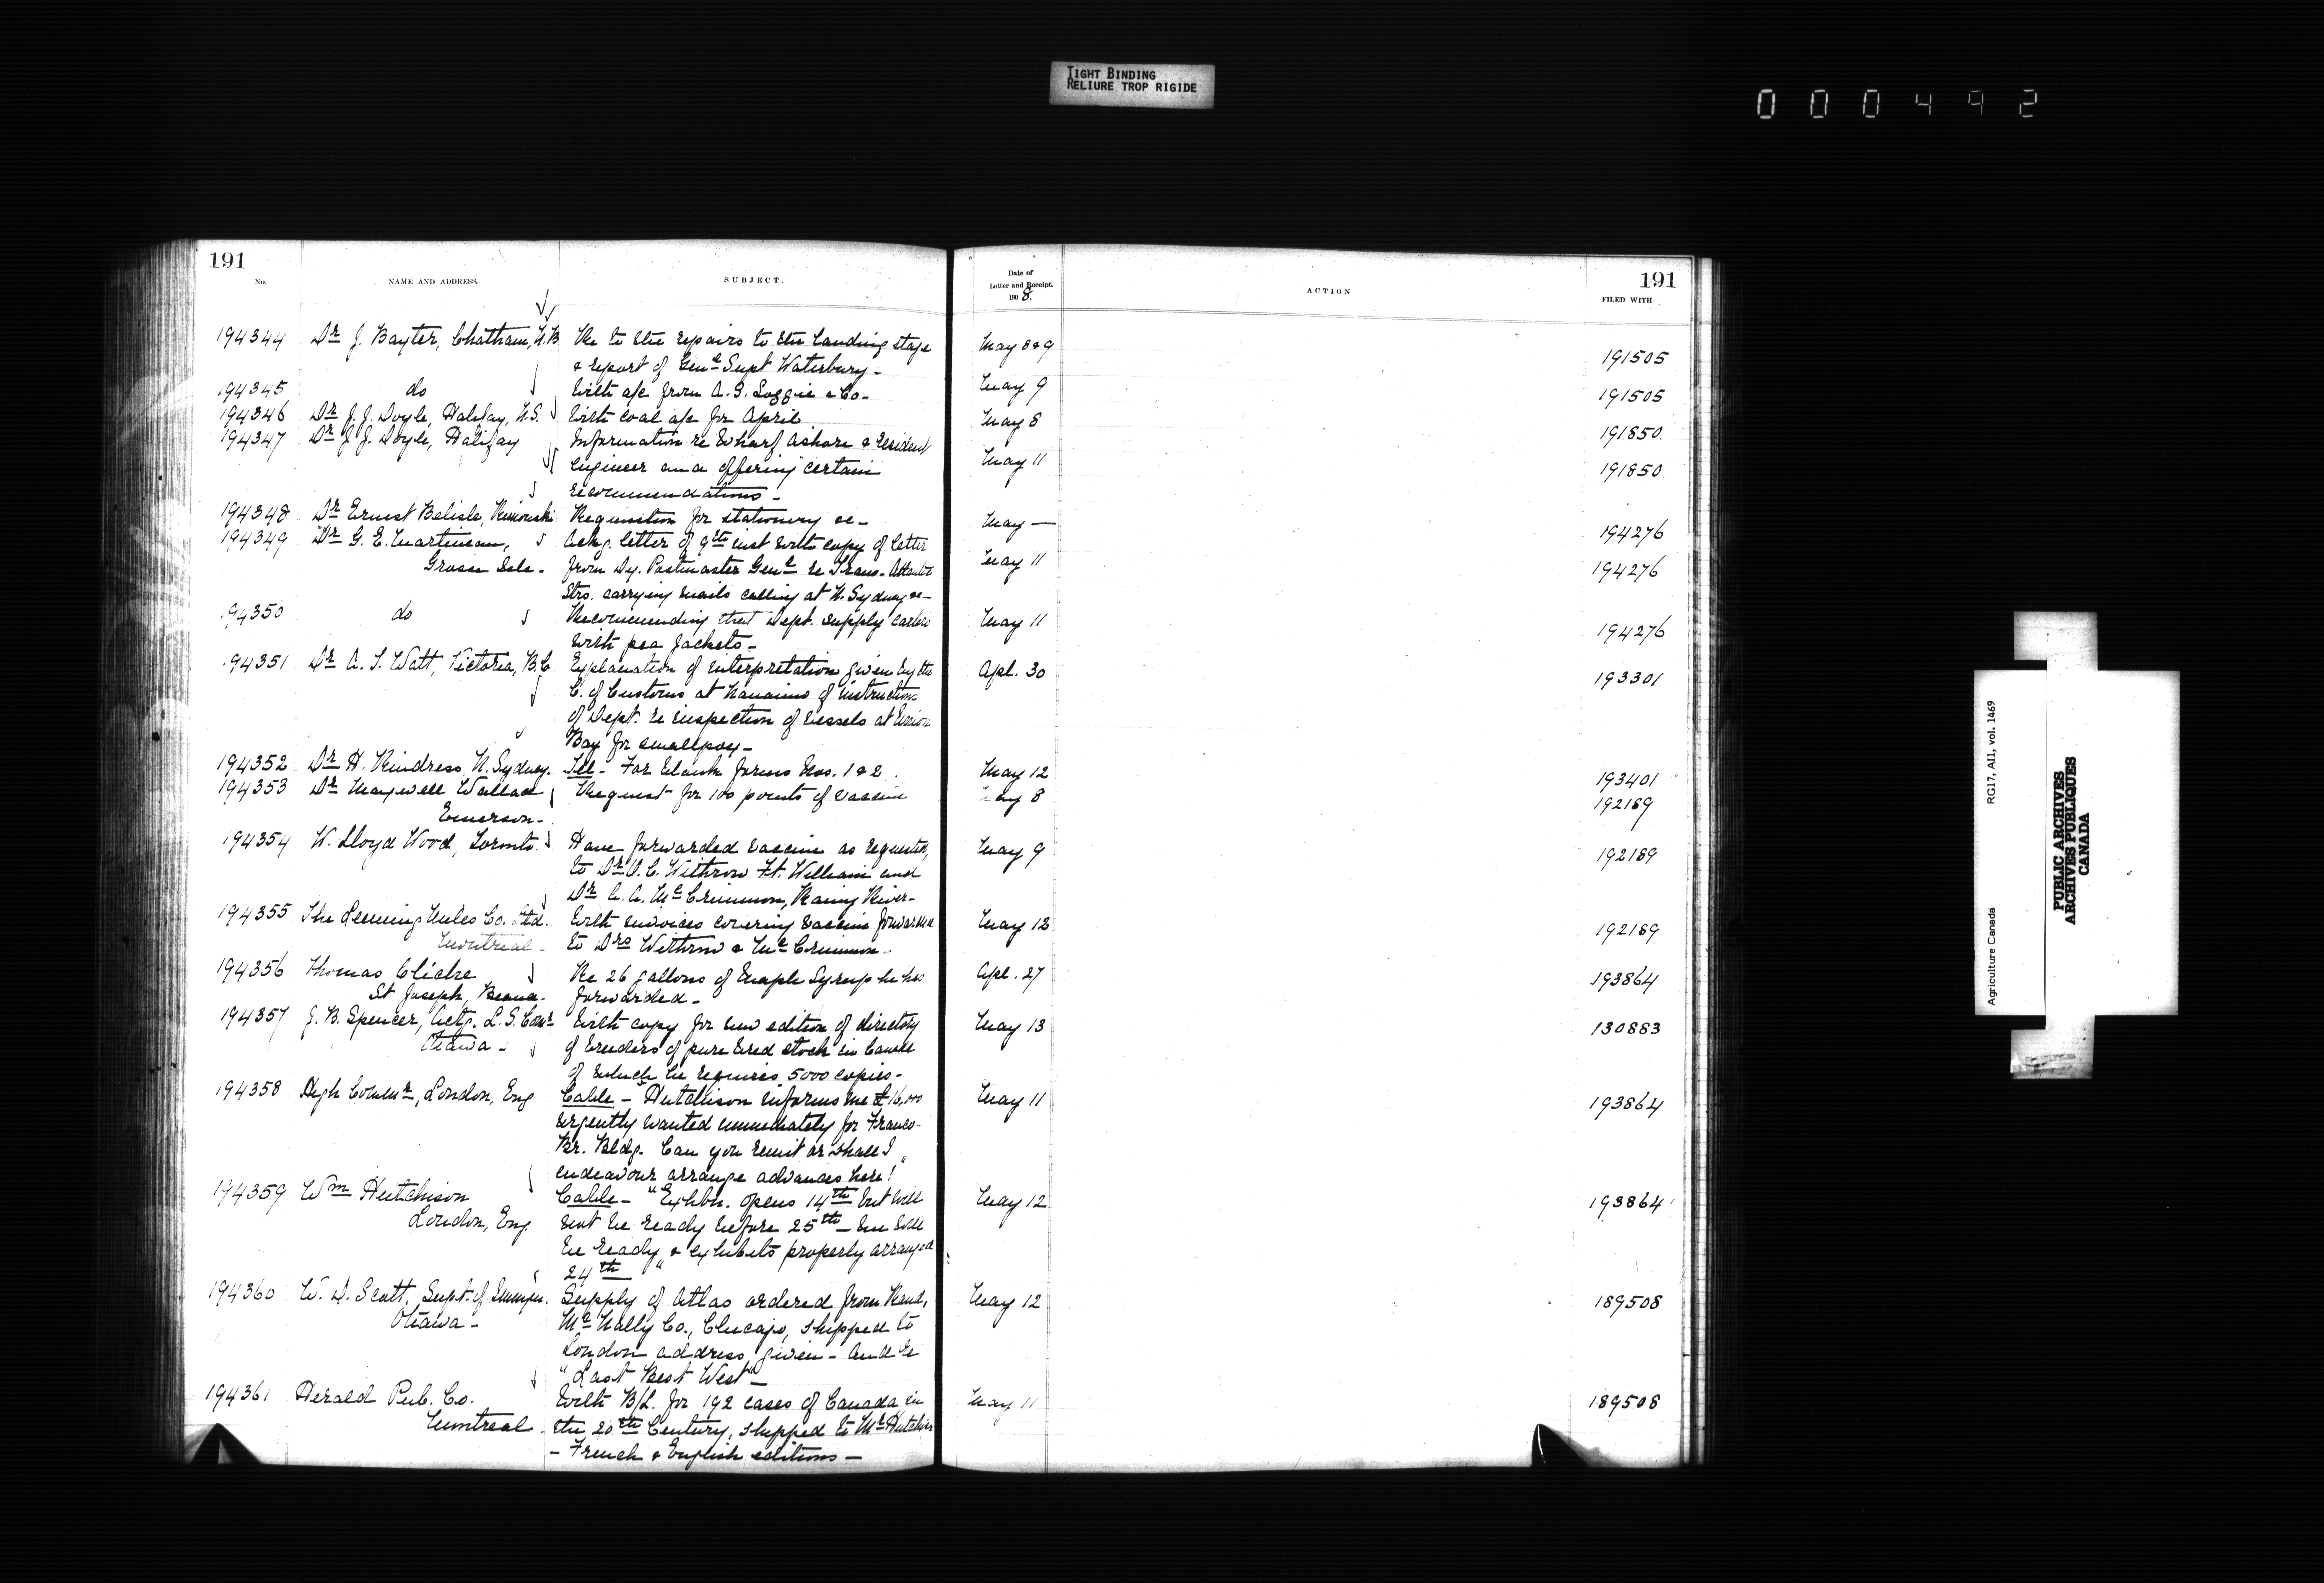 TIGHT BINDING
RELIURE TROP RIGIDE
000492
191
No.
NAME AND ADDRESS.
SUBJECT.
194344 Dr J. Baxter, Chatham, N.B Re to the repairs to the landing stage
& report of Genl Supt Waterbury -
194345 do With a/c from A. & Loggie & Co -
194346 Dr J. J. Doyle, Halifax, N.S. With coal a/c for April
194347 Dr J. J. Doyle, Halifax Information re Wharf ashore & resident
engineer and offering certain
recommendations -
194348 Dr Ernest Belisle, Rimouski Requisition for stationery &c -
194349 Dr G. E. Martineau, Ackg. letter of 9th inst with copy of letter
Grosse Isle - from Dy. Postmaster Genl re Trans-Atlantic
Strs. carrying mails calling at N. Sydney &c -
194350 do Recommending that Dept. supply
with pea jackets -
94351 Dr A. T. Watt, Victoria, B.C Explanation of interpretation given by the
C. of Customs at Nanaimo of instructions
of Dept. re inspection of vessels at Union
Bay for smallpox -
194352 Dr H. Rindress, N. Sydney. Tel - For blank forms Nos. 1 & 2.
194353 Dr Maxwell Wallace Request for 100 points of vaccine
Emerson -
194354 W. Lloyd Wood, Toronto. Have forwarded vaccine as requested,
to Dr O. C. Withrow Ft. William and
Dr A. A. McCrimmon, Rainy River -
194355 The Leeming Miles Co. Ltd. With invoices covering vaccine forwarded
Montreal - to Drs Withrow & McCrimmon -
194356 Thomas Cliche Re 26 gallons of Maple Syrup he has
St Joseph, Beauce. forwarded -
194357 J. B. Spencer, Actg. L. S. Comr With copy for new edition of directory
Ottawa - of breeders of pure bred stock in Canada
of which he requires 5000 copies -
194358 High Commr, London, Eng Cable - "Hutchison informs me £16,000
urgently wanted immediately for Franco-
Br. Bldg. Can you remit or shall I
endeavour arrange advances here!"
194359 Wm Hutchison Cable - "Exhbn. opens 14th but will
London, Eng. not be ready before 25th - We will
be ready & exhibits properly arranged
24th"
194360 W. D. Scott, Supt. of Immign. Supply of Atlas ordered from Rand,
Ottawa - McNally Co., Chicago, shipped to
London address given - and re
"Last Best West" -
194361 Herald Pub. Co. With B/L. for 192 cases of Canada in
Montreal. the 20th Century, shipped to Mr Hutchison
- French & English editions -
Date of
Letter and Receipt.
1908.
ACTION
191
FILED WITH
May 8 & 9 191505
May 9 191505
May 8 191850
May 11 191850
May — 194276
May 11 194276
May 11 194276
Apl. 30 193301
May 12 193401
May 8 192189
May 9 192189
May 12 192189
Apl. 27 193864
May 13 130883
May 11 193864
May 12 193864
May 12 189508
May 11 189508
Agriculture Canada RG17, AII1, vol. 1469
PUBLIC ARCHIVES
ARCHIVES PUBLIQUES
CANADA